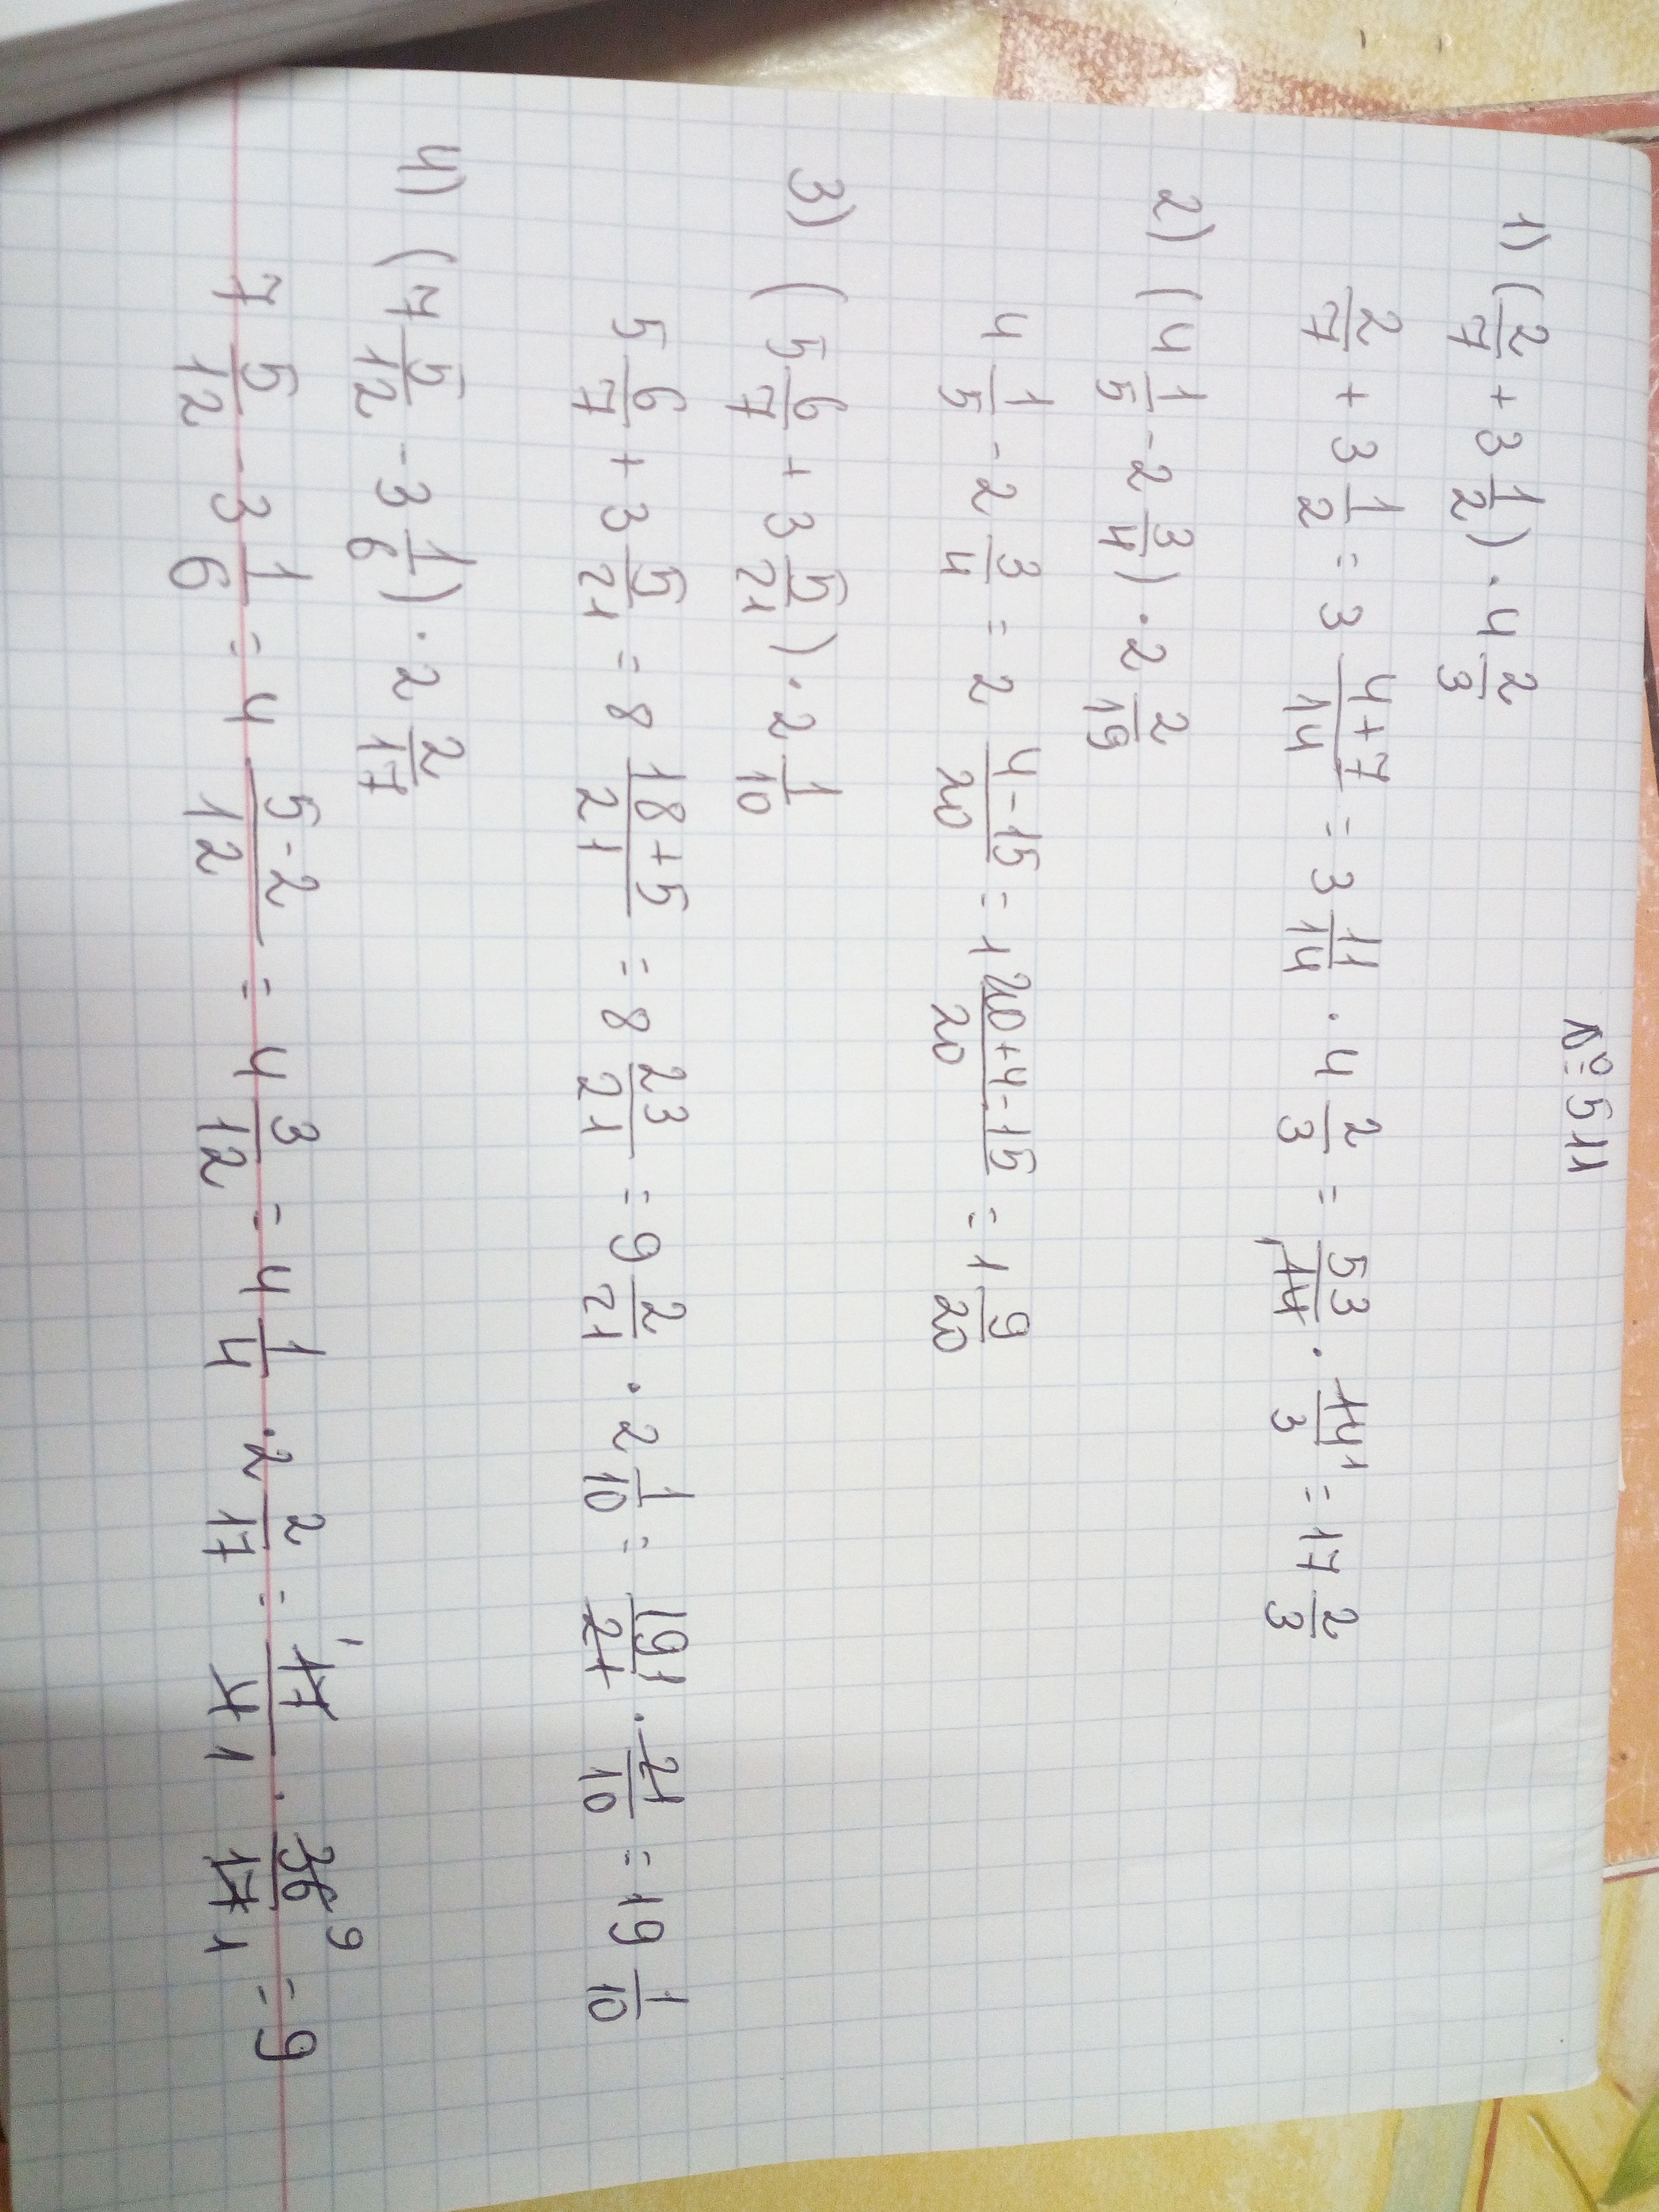 № 511
1) (2/7 + 3 1/2) · 4 2/3
2/7 + 3 1/2 = 3 4+7/14 = 3 11/14 · 4 2/3 = 53/14 1 · 14 1/3 = 17 2/3
2) (4 1/5 - 2 3/4) · 2 2/19
4 1/5 - 2 3/4 = 2 4-15/20 = 1 20+4-15/20 = 1 9/20
3) (5 6/7 + 3 5/21) · 2 1/10
5 6/7 + 3 5/21 = 8 18+5/21 = 8 23/21 = 9 2/21 · 2 1/10 = 191/21 · 21/10 = 19 1/10
4) (7 5/12 - 3 1/6) · 2 2/17
7 5/12 - 3 1/6 = 4 5-2/12 = 4 3/12 = 4 1/4 · 2 2/17 = 1 17/4 1 · 36 9/17 1 = 9